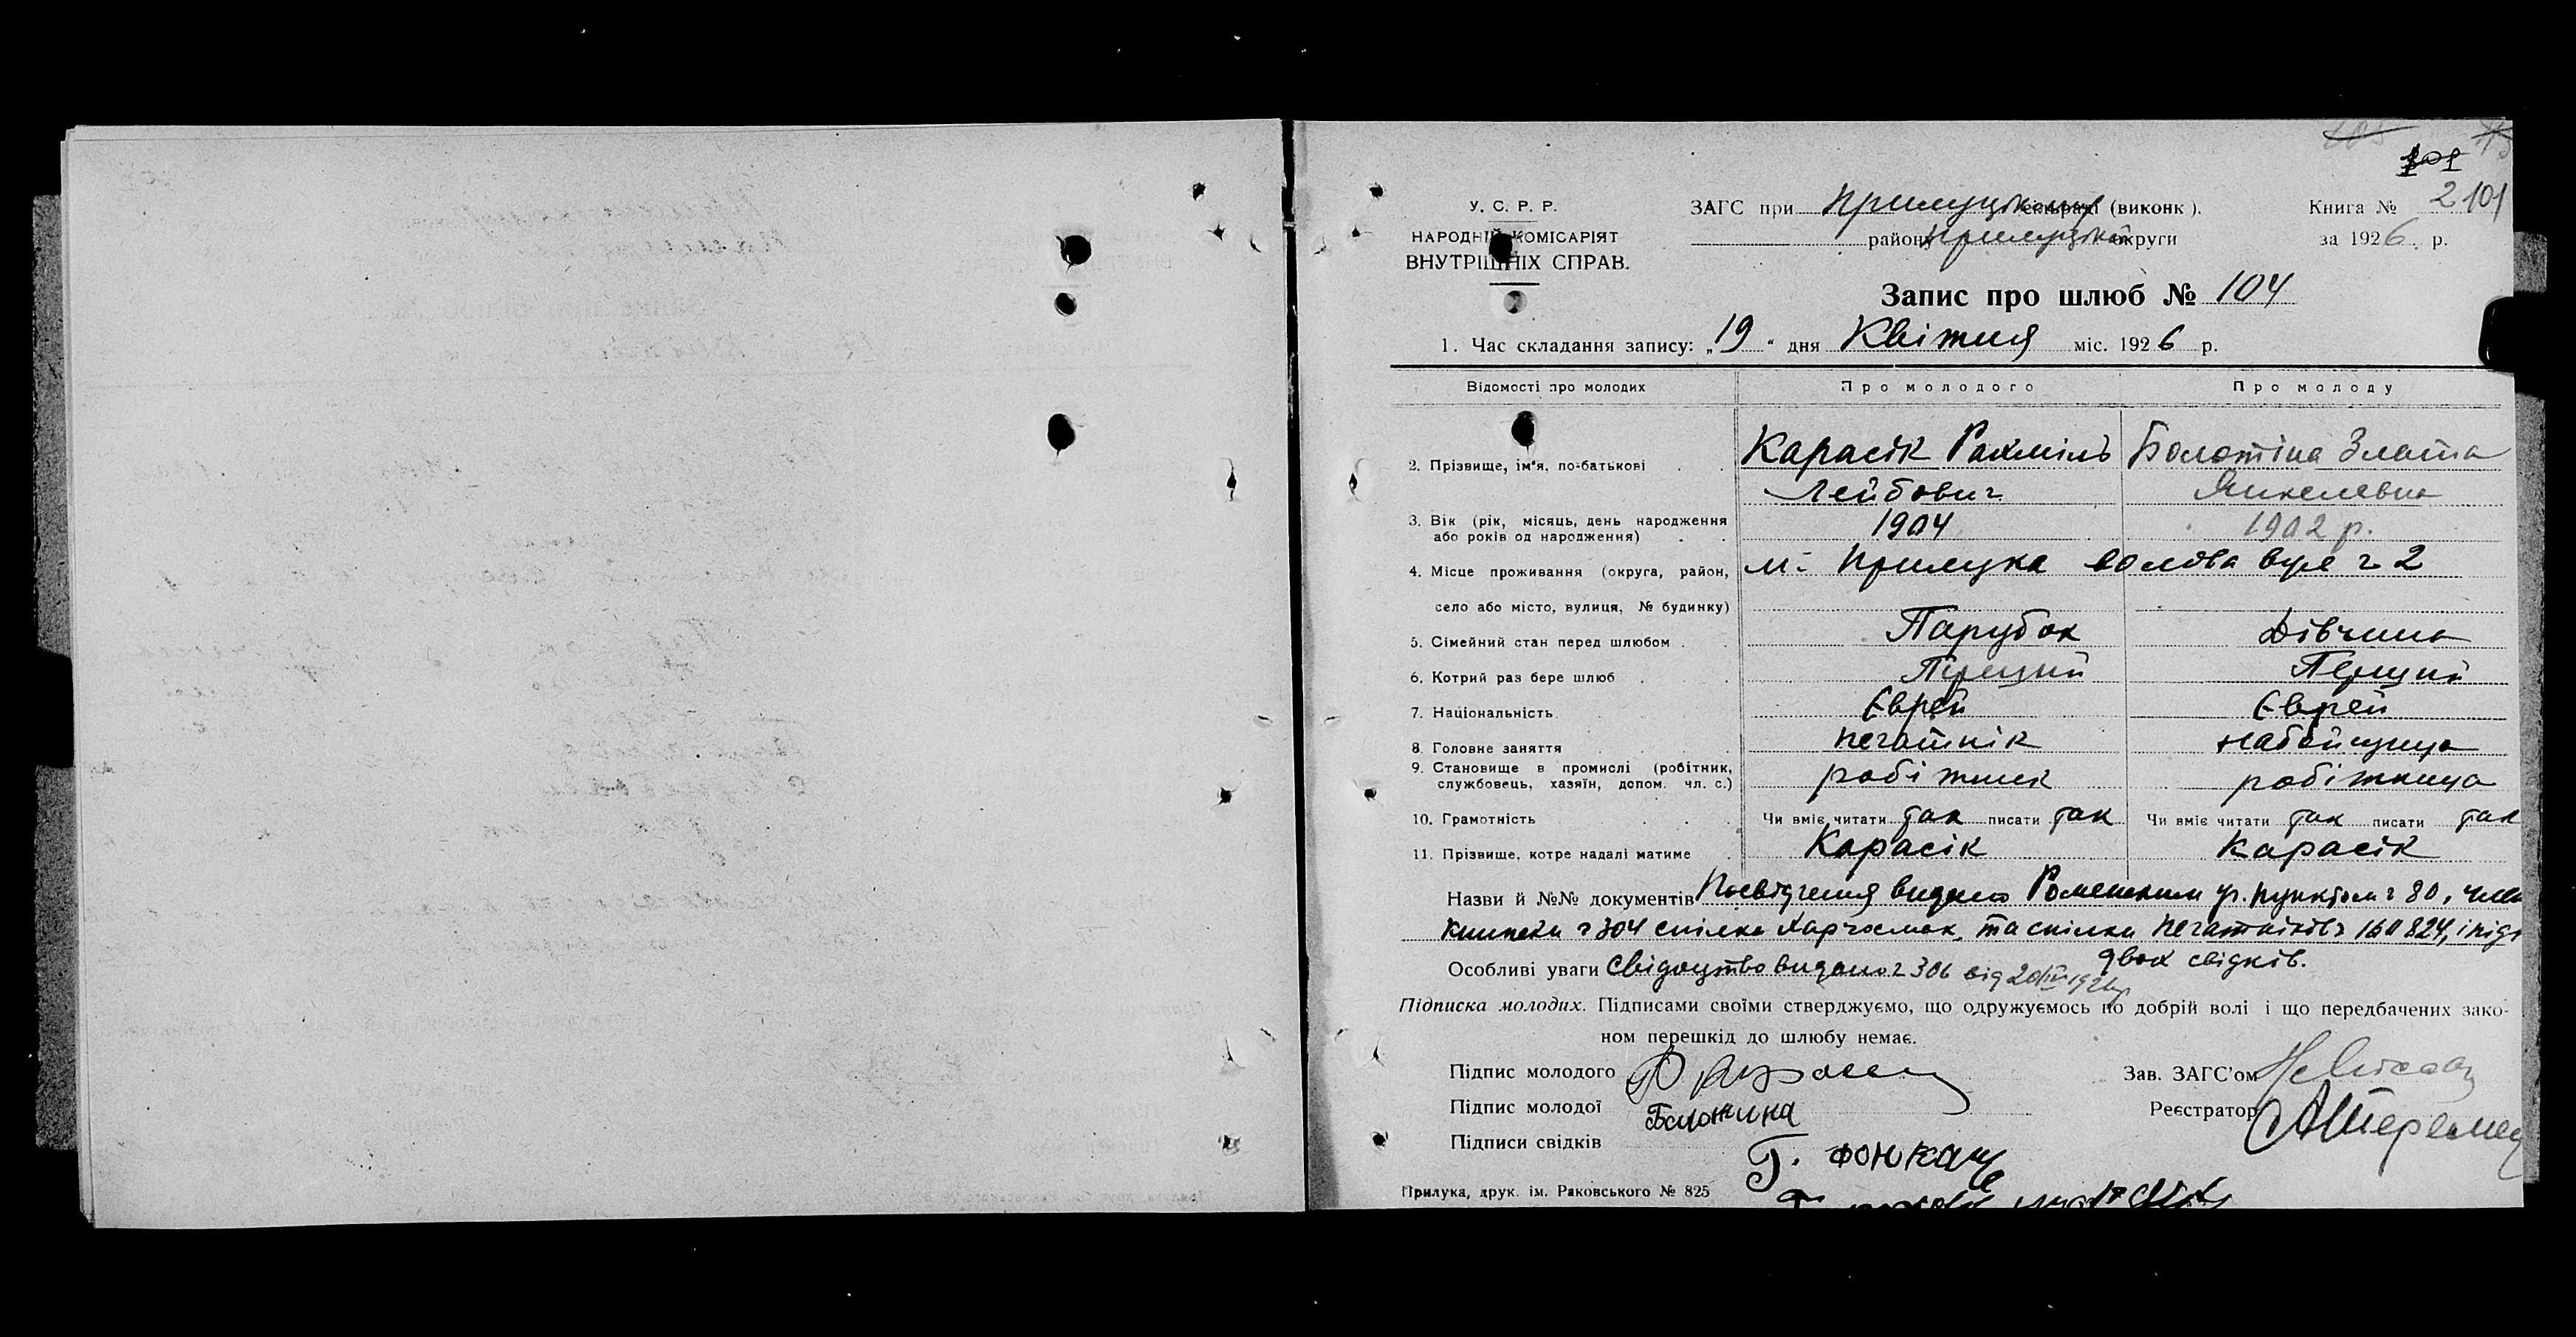 101
У. С. Р. Р.
НАРОДНІЙ КОМІСАРІЯТ
ВНУТРІШНІХ СПРАВ.
ЗАГС при Прилуцькому сельраді (виконк).
району Прилуцької округи
Книга № 2 101
за 1926 р.
Запис про шлюб № 104
1. Час складання запису: „19“ дня Квітня міс. 1926 р.
Відомості про молодих Про молодого Про молоду
2. Прізвище, ім'я, по-батькові Карасік Рахміль Болотіна Злата
Лейбович Янкелевна
3. Вік (рік, місяць, день народження 1904 1902 р.
або років од народження)
4. Місце проживання (округа, район, м. Прилука вул ч 2
село або місто, вулиця, № будинку)
5. Сімейний стан перед шлюбом Парубок Дівчина
6. Котрий раз бере шлюб Перший Перший
7. Національність Єврей Єврей
8. Головне заняття печатнік набойщиця
9. Становище в промислі (робітник, робітник робітниця
службовець, хазяїн, допом. чл. с.)
10. Грамотність Чи вміє читати так писати так Чи вміє читати так писати так
11. Прізвище, котре надалі матиме Карасік Карасік
Назви й №№ документів Посвідчення видано Роменським пунктом ч 80, член
книжки ч 304 спілка Харчосмак, та спілки печатніків ч 160824, і підп
двох свідків.
Особливі уваги Свідоцтво видано ч 306 від 20/IV 1926 р
Підписка молодих. Підписами своїми стверджуємо, що одружуємось по добрій волі і що передбачених зако-
ном перешкід до шлюбу немає.
Підпис молодого
Зав. ЗАГС'ом
Підпис молодої Болотина
Реєстратор
Підписи свідків
Г.
Прилука, друк. ім. Раковського № 825